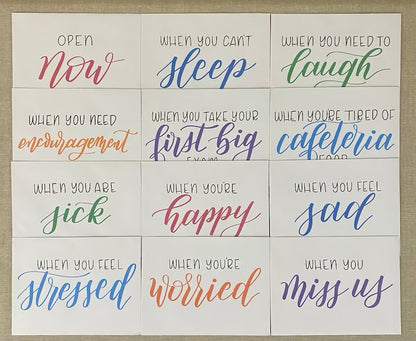 OPEN
now
WHEN YOU CAN'T
sleep
WHEN YOU NEED TO
laugh
WHEN YOU NEED
encouragement
WHEN YOU TAKE YOUR
first big
EXAM
WHEN YOU'RE TIRED OF
cafeteria
FOOD
WHEN YOU ARE
sick
WHEN YOU'RE
happy
WHEN YOU FEEL
sad
WHEN YOU FEEL
stressed
WHEN YOU'RE
worried
WHEN YOU
miss us